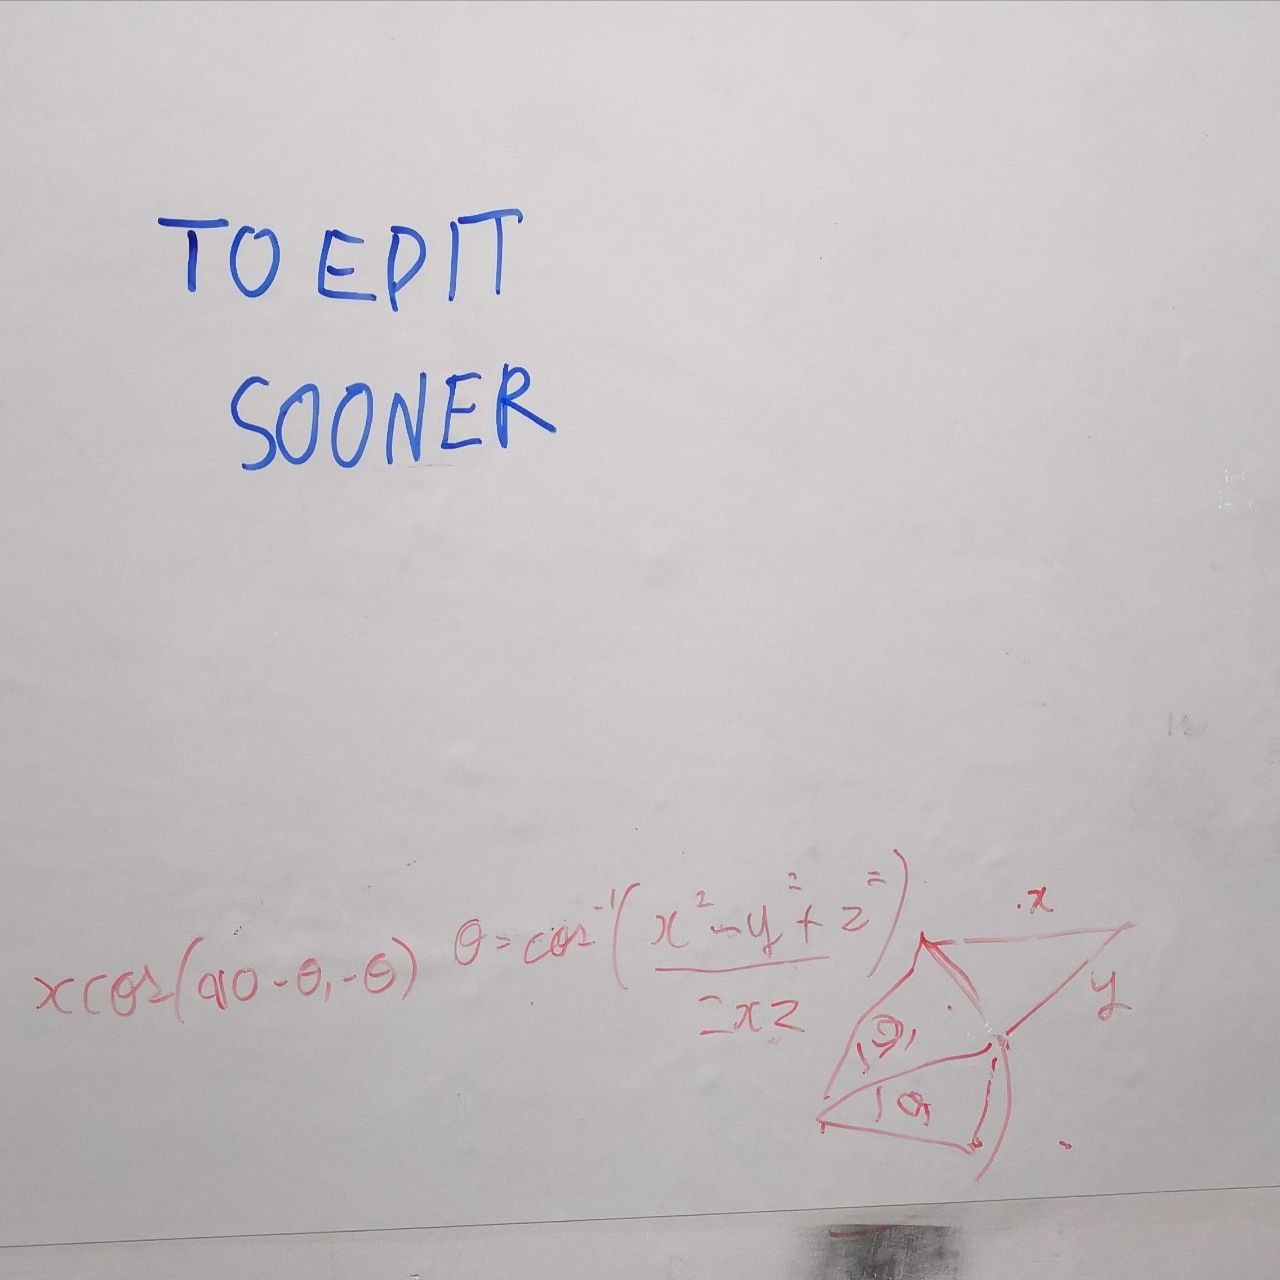 TO EDIT
SOONER
xcos(90-θ₁-θ) θ=cos⁻¹(x²-y²+z²)
2xz
x
y
θ₁
θ